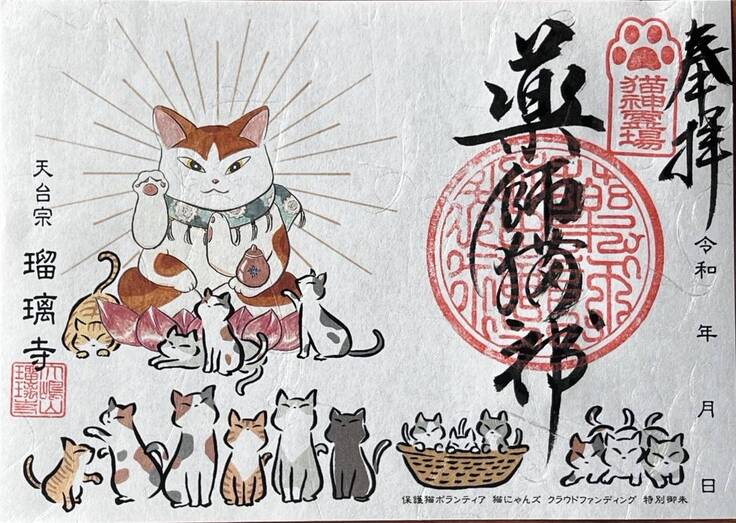 奉拝
猫神霊場
薬師猫神
令和 年 月 日
天台宗
瑠璃寺
保護猫ボランティア 猫にゃんズ クラウドファンディング 特別御朱